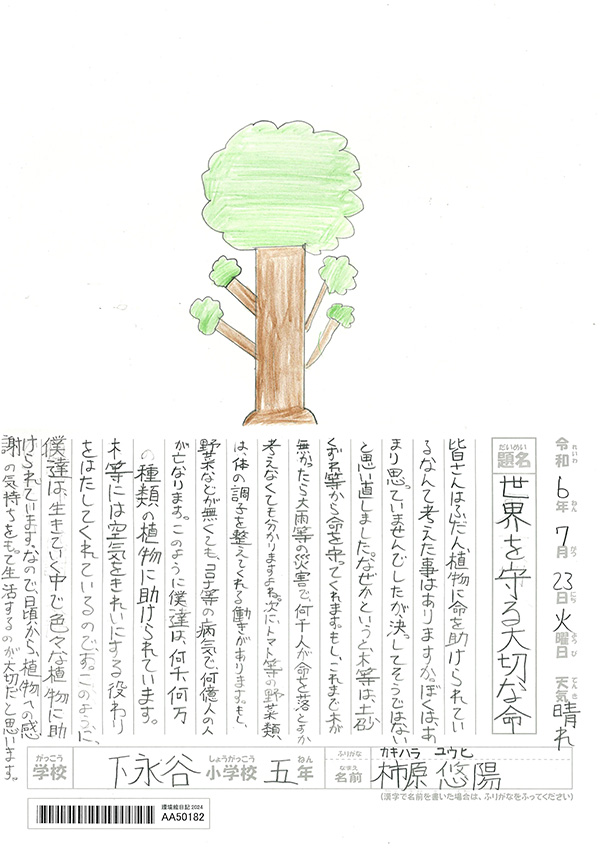 令和6年7月23日火曜日 天気 晴れ
れいわ ねん がつ にち ようび てんき
だいめい
題名 世界を守る大切な命
皆さんはふだん、植物に命を助けられてい
るなんて考えた事はありますか。ぼくは、あ
まり思っていませんでしたが、決してそうではない
と思い直しました。なぜかというと木等は、土砂
くずれ等から命を守ってくれます。もし、これまで木が
無かったら大雨等の災害で、何千人が命を落とすか
考えなくても分かりますよね。次に、トマト等の野菜類
は、体の調子を整えてくれる働きがあります。もし、
野菜などが無くても、コロナ等の病気で何億人の人
が亡なります。このように僕達は、何千、何万
の種類の植物に助けられています。
木等には空気をきれいにする役わり
をはたしてくれているのです。このように、
僕達は、生きていく中で色々な植物に助
けられています。なので日頃から、植物への感
謝の気持ちをもって生活するのが大切だと思います。
がっこう しょうがっこう ねん ふりがな カキハラ ユウヒ
学校 下永谷小学校 五年 なまえ 名前 柿原 悠陽
(漢字で名前を書いた場合は、ふりがなをふってください)
環境絵日記2024
AA50182